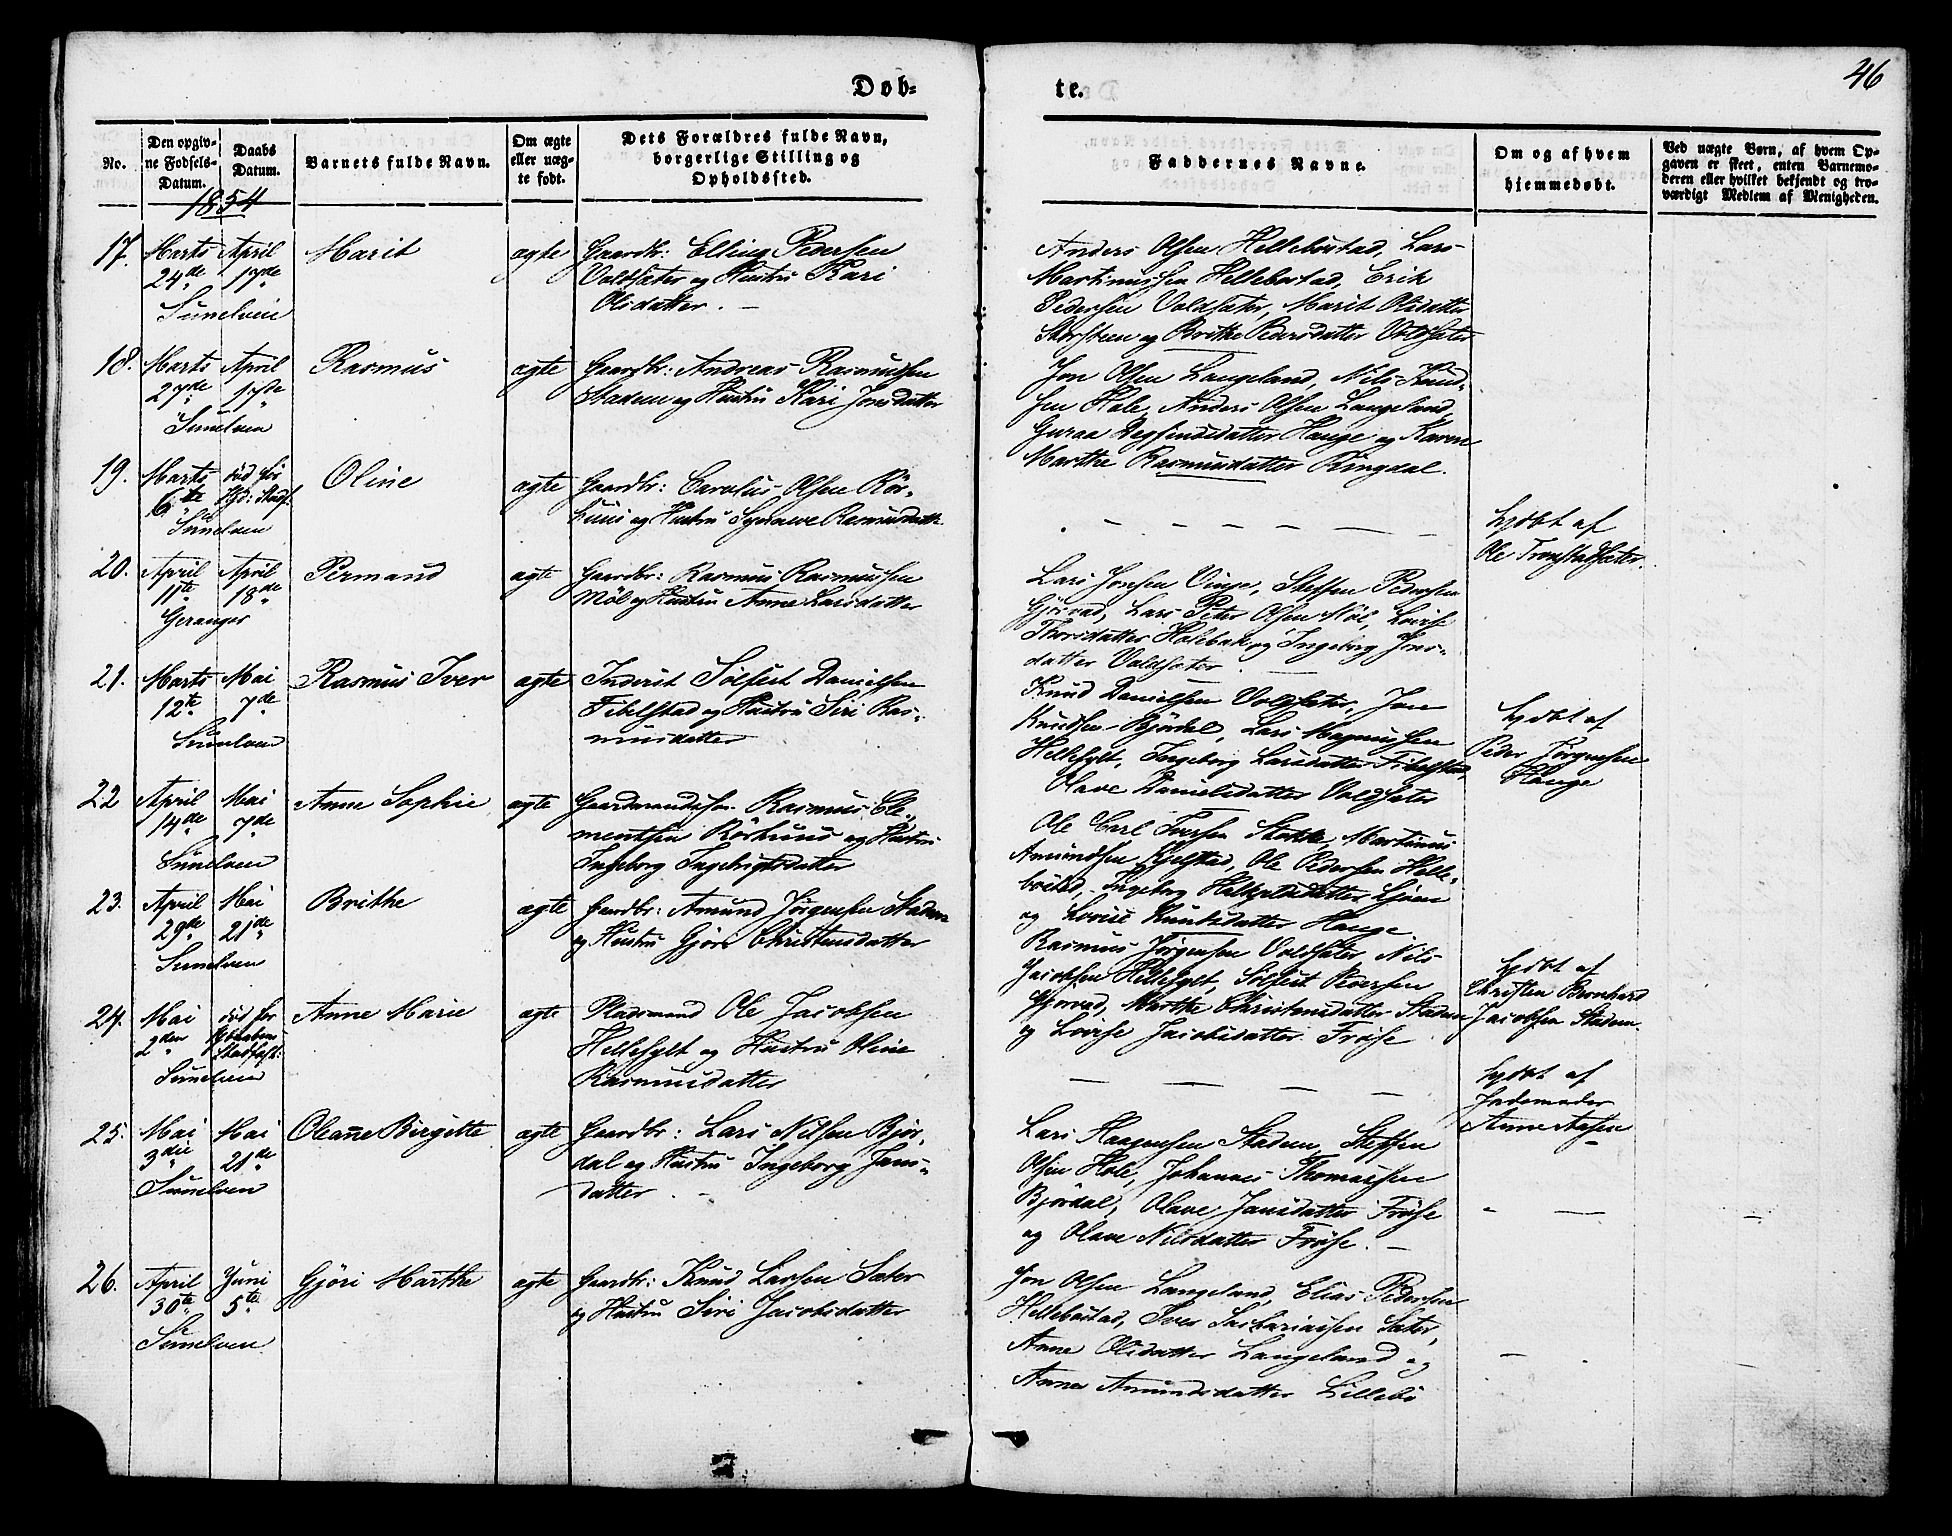 Døb-
te.
46
No.
Den opgiv-
ne Fødsels-
Datum.
Daabs
Datum.
Barnets fulde Navn.
Om ægte
eller uæg-
te født.
Dets Forældres fulde Navn,
borgerlige Stilling og
Opholdssted.
Faddernes Navne.
Om og af hvem
hjemmedøbt.
Ved uægte Børn, af hvem Op-
gaven er skeet, enten Barnemo-
deren eller hvilket bekjendt og tro-
værdigt Medlem af Menigheden.
1854
17. Marts 24de April 17de Marit ægte Gaardbr: Elling Pedersen
Voldsæter og Hustru Kari
Olsdatter.
Sunelven
Anders Olsen Hellebostad, Lars
Martinussen Hellebostad, Erik
Pedersen Voldsæter, Marit Olsdatter
Storsteen og Brithe Pedersdatter Voldsæter
18. Marts 27de April 17de Rasmus ægte Gaardbr: Andreas Rasmussen
Stadem og Hustru Kari Jonsdatter
Sunelven
Jon Olsen Langeland, Nils Knud-
sen Hole, Anders Olsen Langeland,
Hauge og Karen
Marthe Rasmusdatter Ringdal.
19. Marts 6te død før Stadf. Oline ægte Gaardbr: Carolus Olsen Rør-
huus og Hustru Synneve Rasmusdatt.
Sunelven
hjdbt af
Ole Tronstadsæter.
20. April 11te April 18de Permand ægte Gaardbr: Rasmus Rasmussen
Møl og Hustru Anne Larsdatter
Geranger
Lars Jonsen Vinje, Steffen Pedersen
Gjørvad, Lars Peter Olsen Møl,
Thorsdatter Holebak og Ingeborg Jens-
datter Voldsæter
21. Marts 12te Mai 7de Rasmus Iver ægte Inderst Sølfest Danielsen
Fibelstad og Hustru Siri Ras-
musdatter
Sunelven
Knud Danielsen Voldsæter, Jon
Knudsen Bjørdal, Lars Magnussen
Hellesylt, Ingeborg Larsdatter Fibelstad,
Olave Danielsdatter Voldsæter
hjdbt af
Peder Jørgensen
Hauge
22 April 14de Mai 7de Anne Sophie ægte Gaardmandssøn Rasmus Cle-
mentsen Rørhuus og Hustru
Ingeborg Ingebrigtsdatter
Sunelven
Ole Carl Iversen Stokke, Martinus
Amundsen Kjelstad, Ole Pedersen Helle-
bostad, Ingeborg Ljøen
og Lovise Knudsdatter Hauge
23. April 29de Mai 21de Brithe ægte Gardbr: Amund Jørgensen Stadem
og Hustru Gjøri Christensdatter
Sunelven
Rasmus Jørgensen Voldsæter, Nils
Jacobsen Hellesylt, Sølfest Pedersen
Gjørvad, Marthe Christensdatter Stadem
og Lovise Jacobsdatter Frøise
hjdbt af
Christen Bernhard
Jacobsen Stadem.
24. Mai 2den død før Stadfæst: Anne Marie ægte Pladsmand Ole Jacobsen
Hellesylt og Hustru Oline
Rasmusdatter
Sunelven
hjdbt af
Jordemoder
Anne Aasen
25. Mai 3die Mai 21de Oleanne Birgitte ægte Gaardbr: Lars Nilsen Bjør-
dal og Hustru Ingeborg Jans-
datter.
Sunelven
Lars Haagensen Stadem, Steffen
Olsen Hole, Johannes Thomassen
Bjørdal, Olave Jansdatter Frøise
og Olave Nilsdatter Frøise.
26. April 30te Juni 5te Gjøri Marthe ægte Gaardbr: Knud Larsen Sæter
og Hustru Siri Jacobsdatter
Sunelven
Jon Olsen Langeland, Elias Pedersen
Hellebostad, Iver Sachariassen Sæter,
Anne Olsdatter Langeland og
Anne Amundsdatter Lillebø